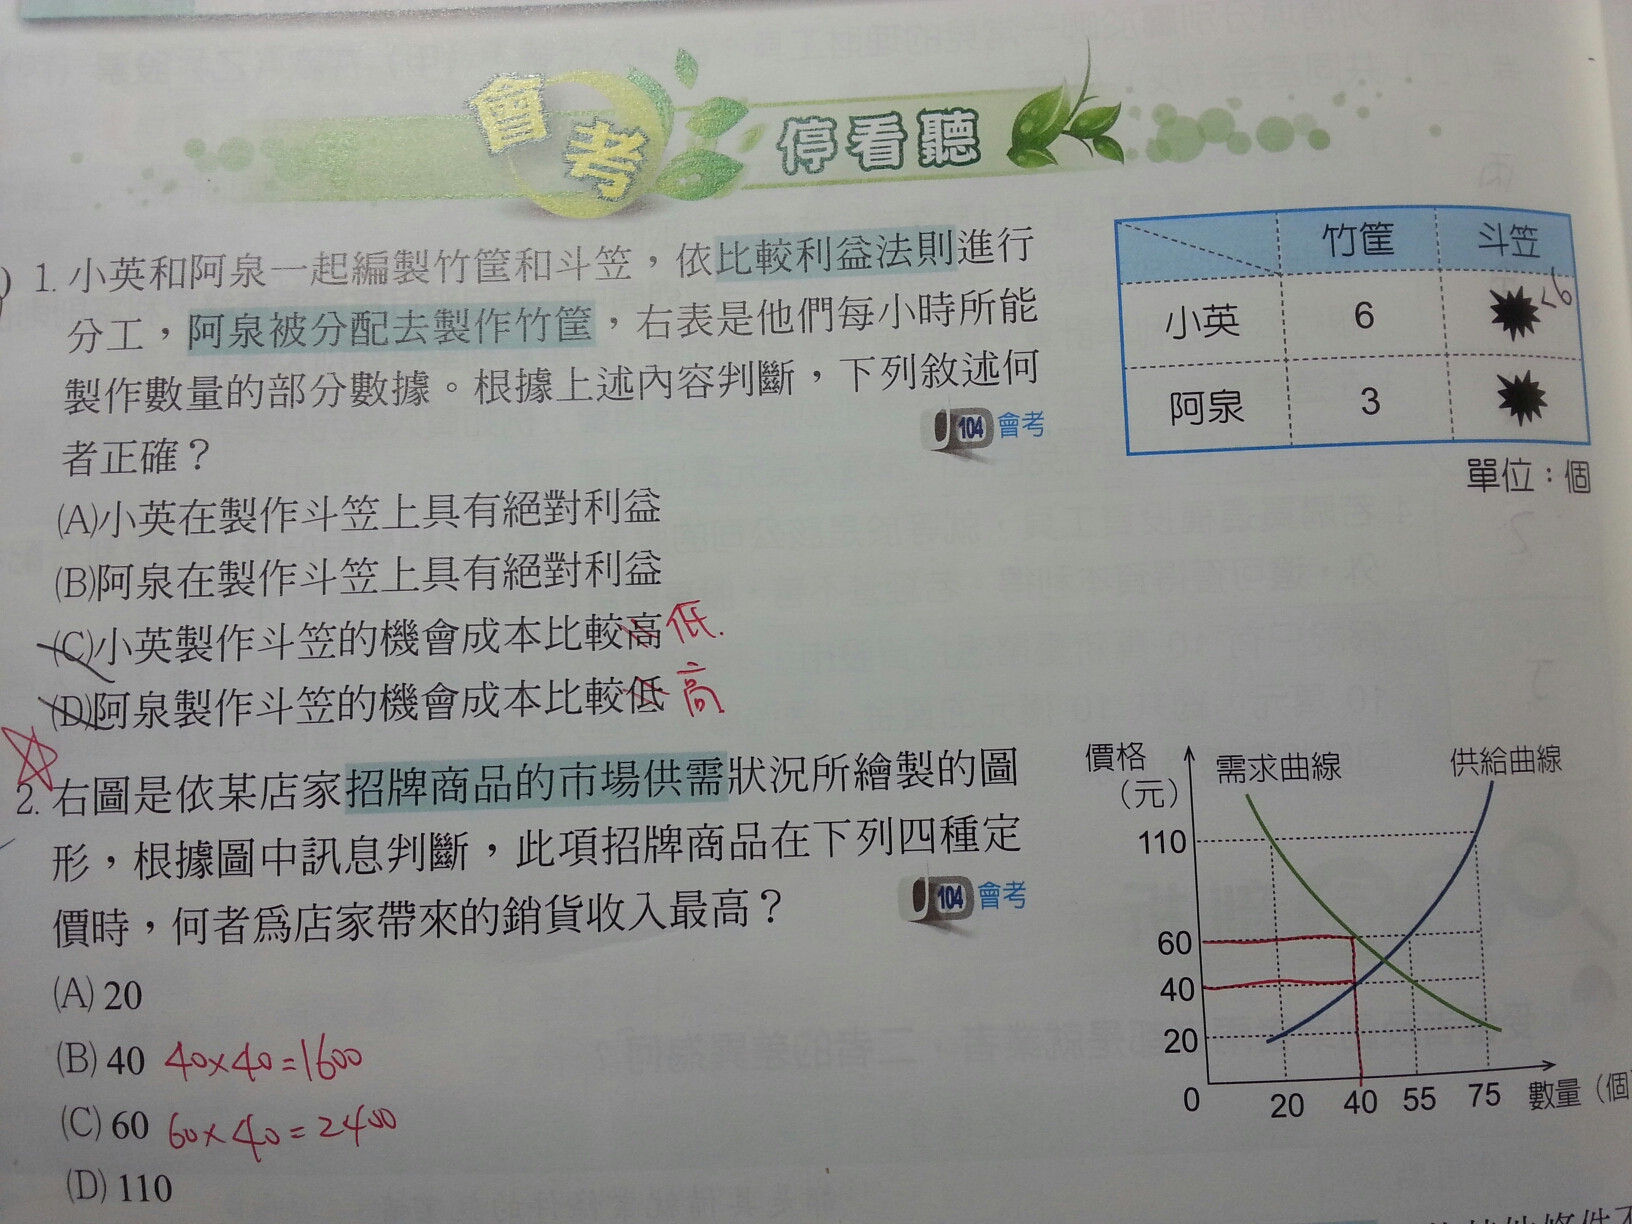 會考 停看聽
) 1. 小英和阿泉一起編製竹筐和斗笠，依比較利益法則進行
分工，阿泉被分配去製作竹筐，右表是他們每小時所能
製作數量的部分數據。根據上述內容判斷，下列敘述何
者正確？
104 會考
(A)小英在製作斗笠上具有絕對利益
(B)阿泉在製作斗笠上具有絕對利益
(C)小英製作斗笠的機會成本比較高 低.
(D)阿泉製作斗笠的機會成本比較低 高
竹筐 斗笠
小英 6
阿泉 3
單位：個
2. 右圖是依某店家招牌商品的市場供需狀況所繪製的圖
形，根據圖中訊息判斷，此項招牌商品在下列四種定
價時，何者為店家帶來的銷貨收入最高？
104 會考
(A) 20
(B) 40 40×40=1600
(C) 60 60×40=2400
(D) 110
價格
（元）
需求曲線 供給曲線
110
60
40
20
0 20 40 55 75 數量（個